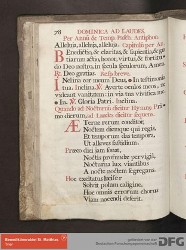 78 DOMINICA AD LAUDES.
Per Annū & Temp. Pasch. Antiphon.
Alleluja, alleluja, alleluja. Capitulū per An.
Benedictio, & claritas, & sapientia, & gra-
tiarum actio, honor, virtus, & fortitu-
do Deo nostro, in sæcula sæculorum. Amen.
℟. Deo gratias. Resp. breve.
Inclina cor meum Deus, * In testimonia
tua. Inclina. ℣. Averte oculos meos, ne
videant vanitatem: in via tua vivifica me.
* In. ℣. Gloria Patri. Inclina.
Quando ad Nocturnum dicitur Hymnus Pri-
mo dierum, ad Laudes dicitur sequens.
Æterne rerum conditor,
Noctem diemque qui regis,
Et temporum das tempora,
Ut alleves fastidium.
Præco diei jam sonat,
Noctis profundæ pervigil,
Nocturna lux viantibus
A nocte noctem segregans.
Hoc excitatus lucifer
Solvit polum caligine,
Hoc omnis errorum chorus
Viam nocendi deserit.
gefördert durch
DFG